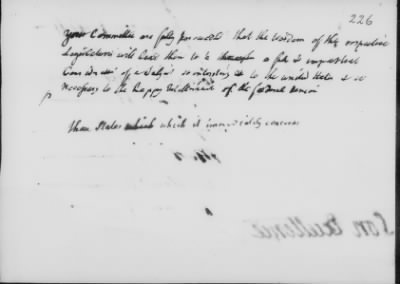 226
your Committee are fully persuaded that the wisdom of the respective
Legislatures will lead them to a full & impartial
Consideration of a subject so interesting to the united States & so
necessary to the happy establishment of the foederal union
those States which which it immediately concerns
Son Excellence